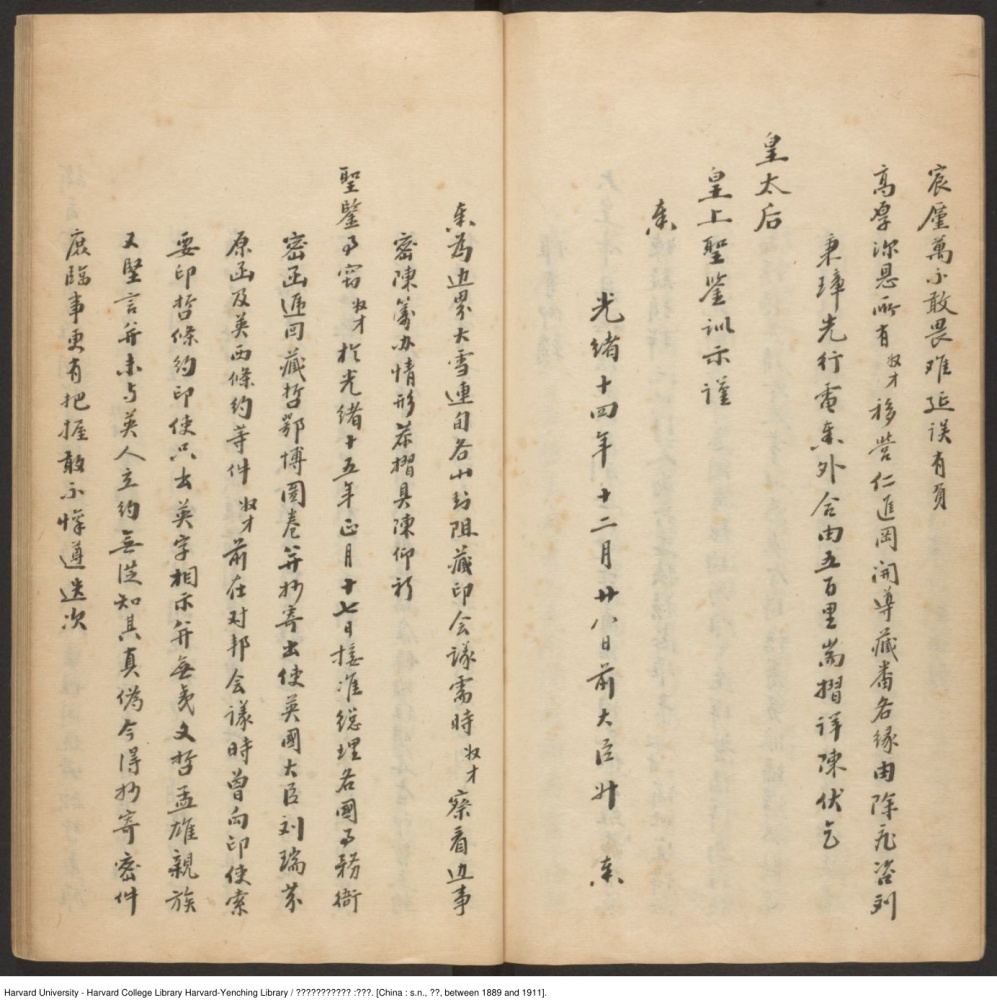 宸廑萬不敢畏难延误有負
高厚深恩所有奴才移营仁進岡開導藏番各缘由除飛咨刘
秉璋先行電奏外合由五百里耑摺詳陳伏乞
皇太后
皇上聖鉴訓示谨
奏
光绪十四年十二月廿八日前大臣升 奏
奏為边界大雪連旬各山封阻藏印会議需時奴才察看边事
密陳筹办情形恭摺具陳仰祈
聖鑒事窃奴才於光绪十五年正月十七日接准總理各國事務衙
密函遞回藏哲鄂博圖卷并抄寄出使英國大臣刘瑞芬
原函及英西條约等件奴才前在对邦会議時曾向印使索
要印哲條约印使只出英字相示并無夷文哲孟雄親族
又堅言并未与英人立约無從知其真偽今得抄寄密件
庶臨事更有把握敢不懔遵迭次
Harvard University - Harvard College Library Harvard-Yenching Library / ??????????? :???. [China : s.n., ??, between 1889 and 1911].